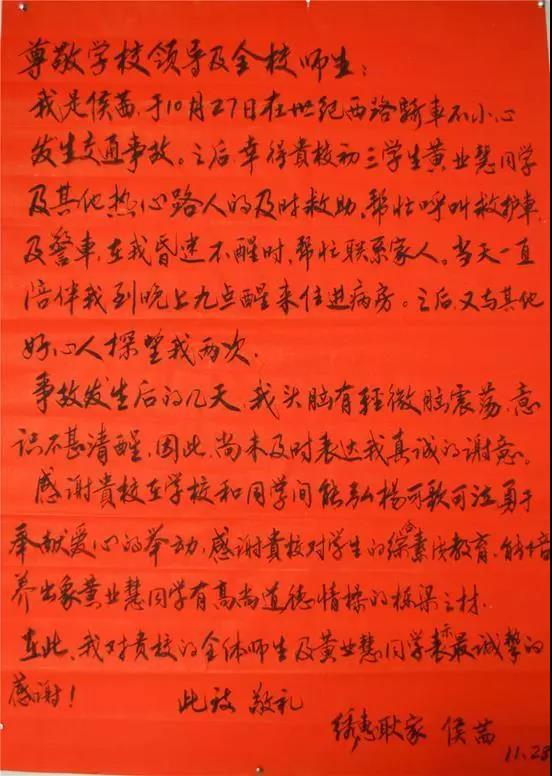 尊敬学校领导及全校师生：
我是侯茜，于10月27日在世纪西路骑车不小心
发生交通事故。之后，幸得貴校初三学生黄业慧同学
及其他热心路人的及时救助，帮忙呼叫救护车
及警车，在我昏迷不醒时，帮忙联系家人。当天一直
陪伴我到晚上九点醒来住进病房。之后，又与其他
好心人探望我两次.
事故发生后的几天，我头脑有轻微脑震荡，意
识不甚清醒，因此，尚未及时表达我真诚的谢意。
感谢貴校在学校和同学间能弘楊可歌可泣勇于
奉献爱心的举动，感谢貴校对学生的综合素质教育，能培
养出象黄业慧同学有高尚道德情操的栋梁之材.
在此，我对贵校的全体师生及黄业慧同学表示最诚挚的
感谢！ 此致 敬礼
绣惠耿家 侯茜
11.28